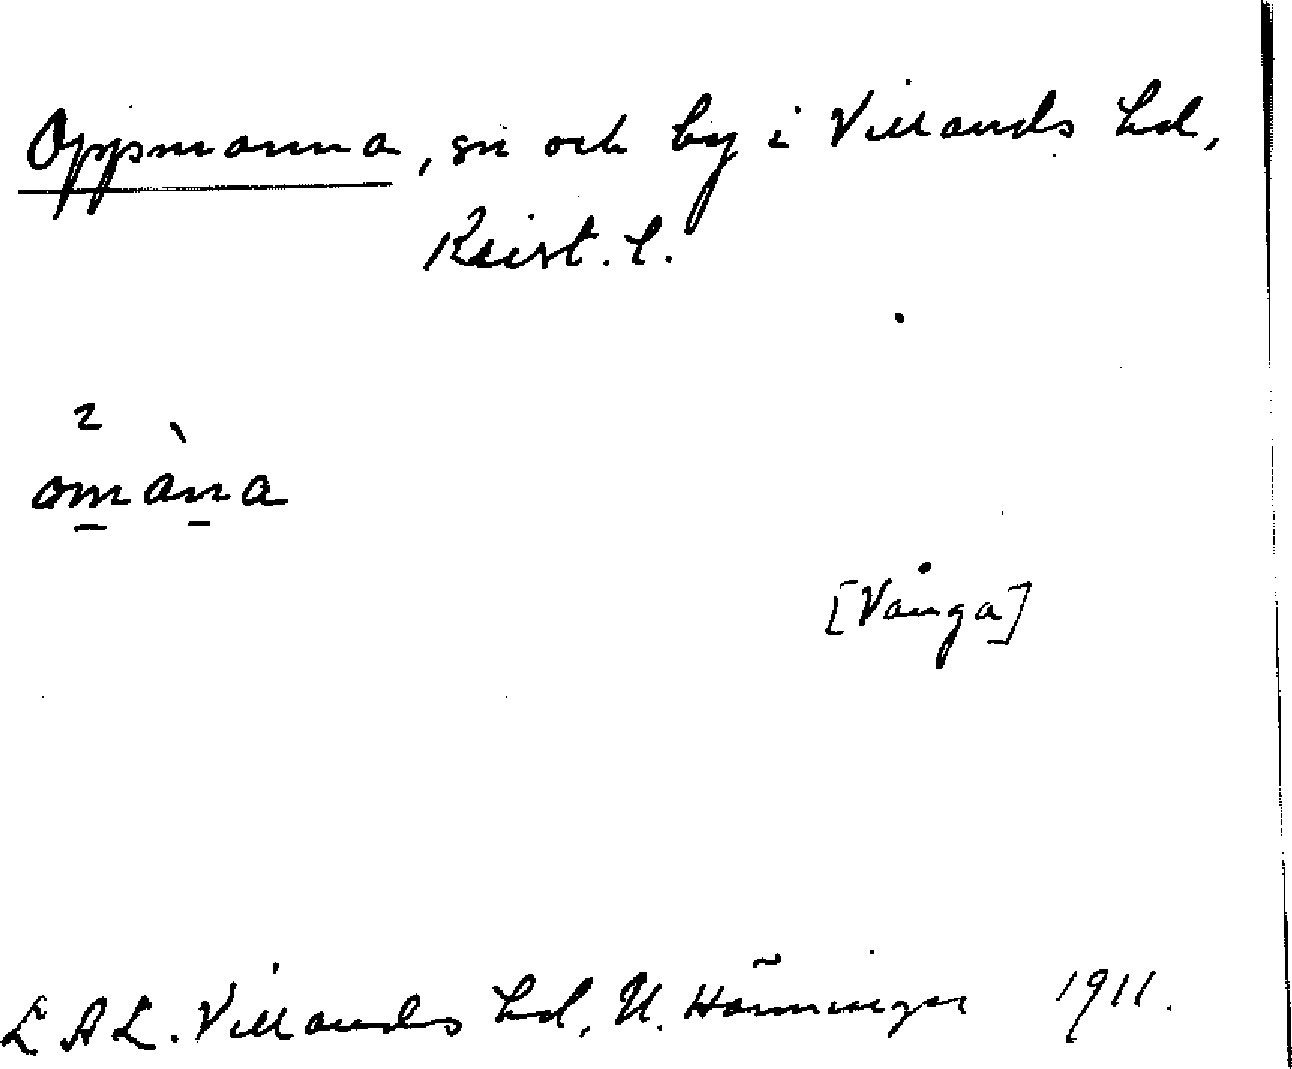 Oppmanna, sn och by i Villands hd,
Krist. l.
2 `
omàna
[Vånga]
LAL. Villands hd, N. Hänninger 1911.